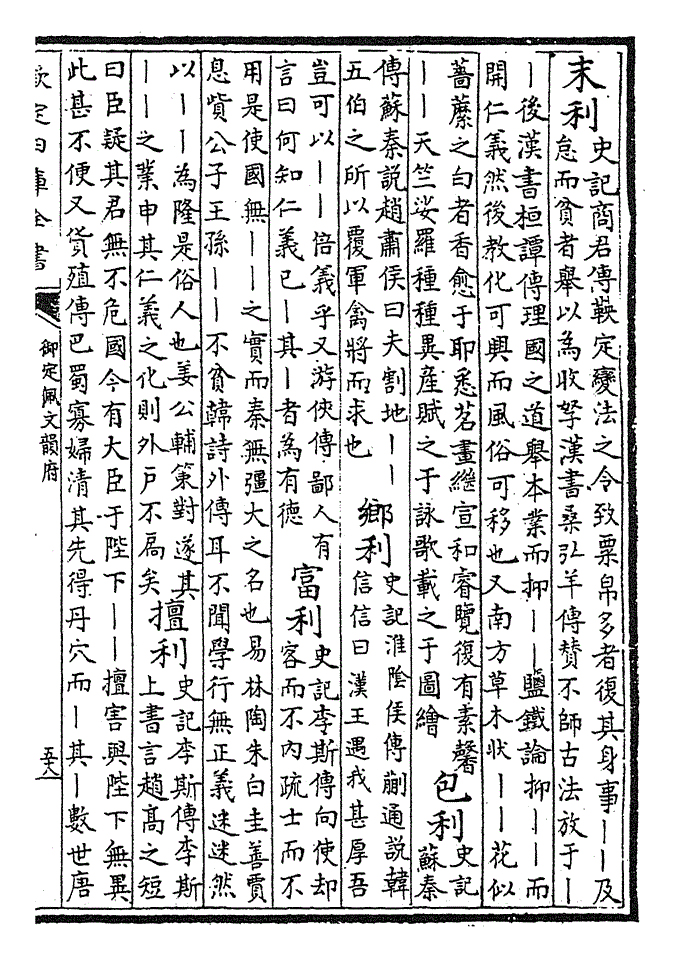 末利史記商君傳鞅定變法之令致粟帛多者復其身事丨丨及
怠而貧者舉以為收孥漢書桑弘羊傳贊不師古法放于丨
丨後漢書桓譚傳理國之道舉本業而抑丨丨鹽鐵論抑丨丨而
開仁義然後教化可興而風俗可移也又南方草木狀丨丨花似
薔蘼之白者香愈于耶悉茗畫繼宣和睿覽復有素馨
丨丨天竺娑羅種種異産賦之于詠歌載之于圖繪
包利史記
蘇秦
傳蘇秦説趙肅侯曰夫割地丨丨
五伯之所以覆軍禽將而求也
鄉利史記淮陰侯傳蒯通説韓
信信曰漢王遇我甚厚吾
豈可以丨丨倍義乎又游俠傳鄙人有
言曰何知仁義已丨其丨者為有德
富利史記李斯傳向使却
客而不内疏士而不
用是使國無丨丨之實而秦無彊大之名也易林陶朱白圭善賈
息貲公子王孫丨丨不貧韓詩外傳耳不聞學行無正義迷迷然
以丨丨為隆是俗人也姜公輔策對遂其
丨丨之業申其仁義之化則外戶不扃矣
擅利史記李斯傳李斯
上書言趙高之短
曰臣疑其君無不危國今有大臣于陛下丨丨擅害與陛下無異
此甚不便又貨殖傳巴蜀寡婦清其先得丹穴而丨其丨數世唐
欽定四庫全書
御定佩文韻府
五十八